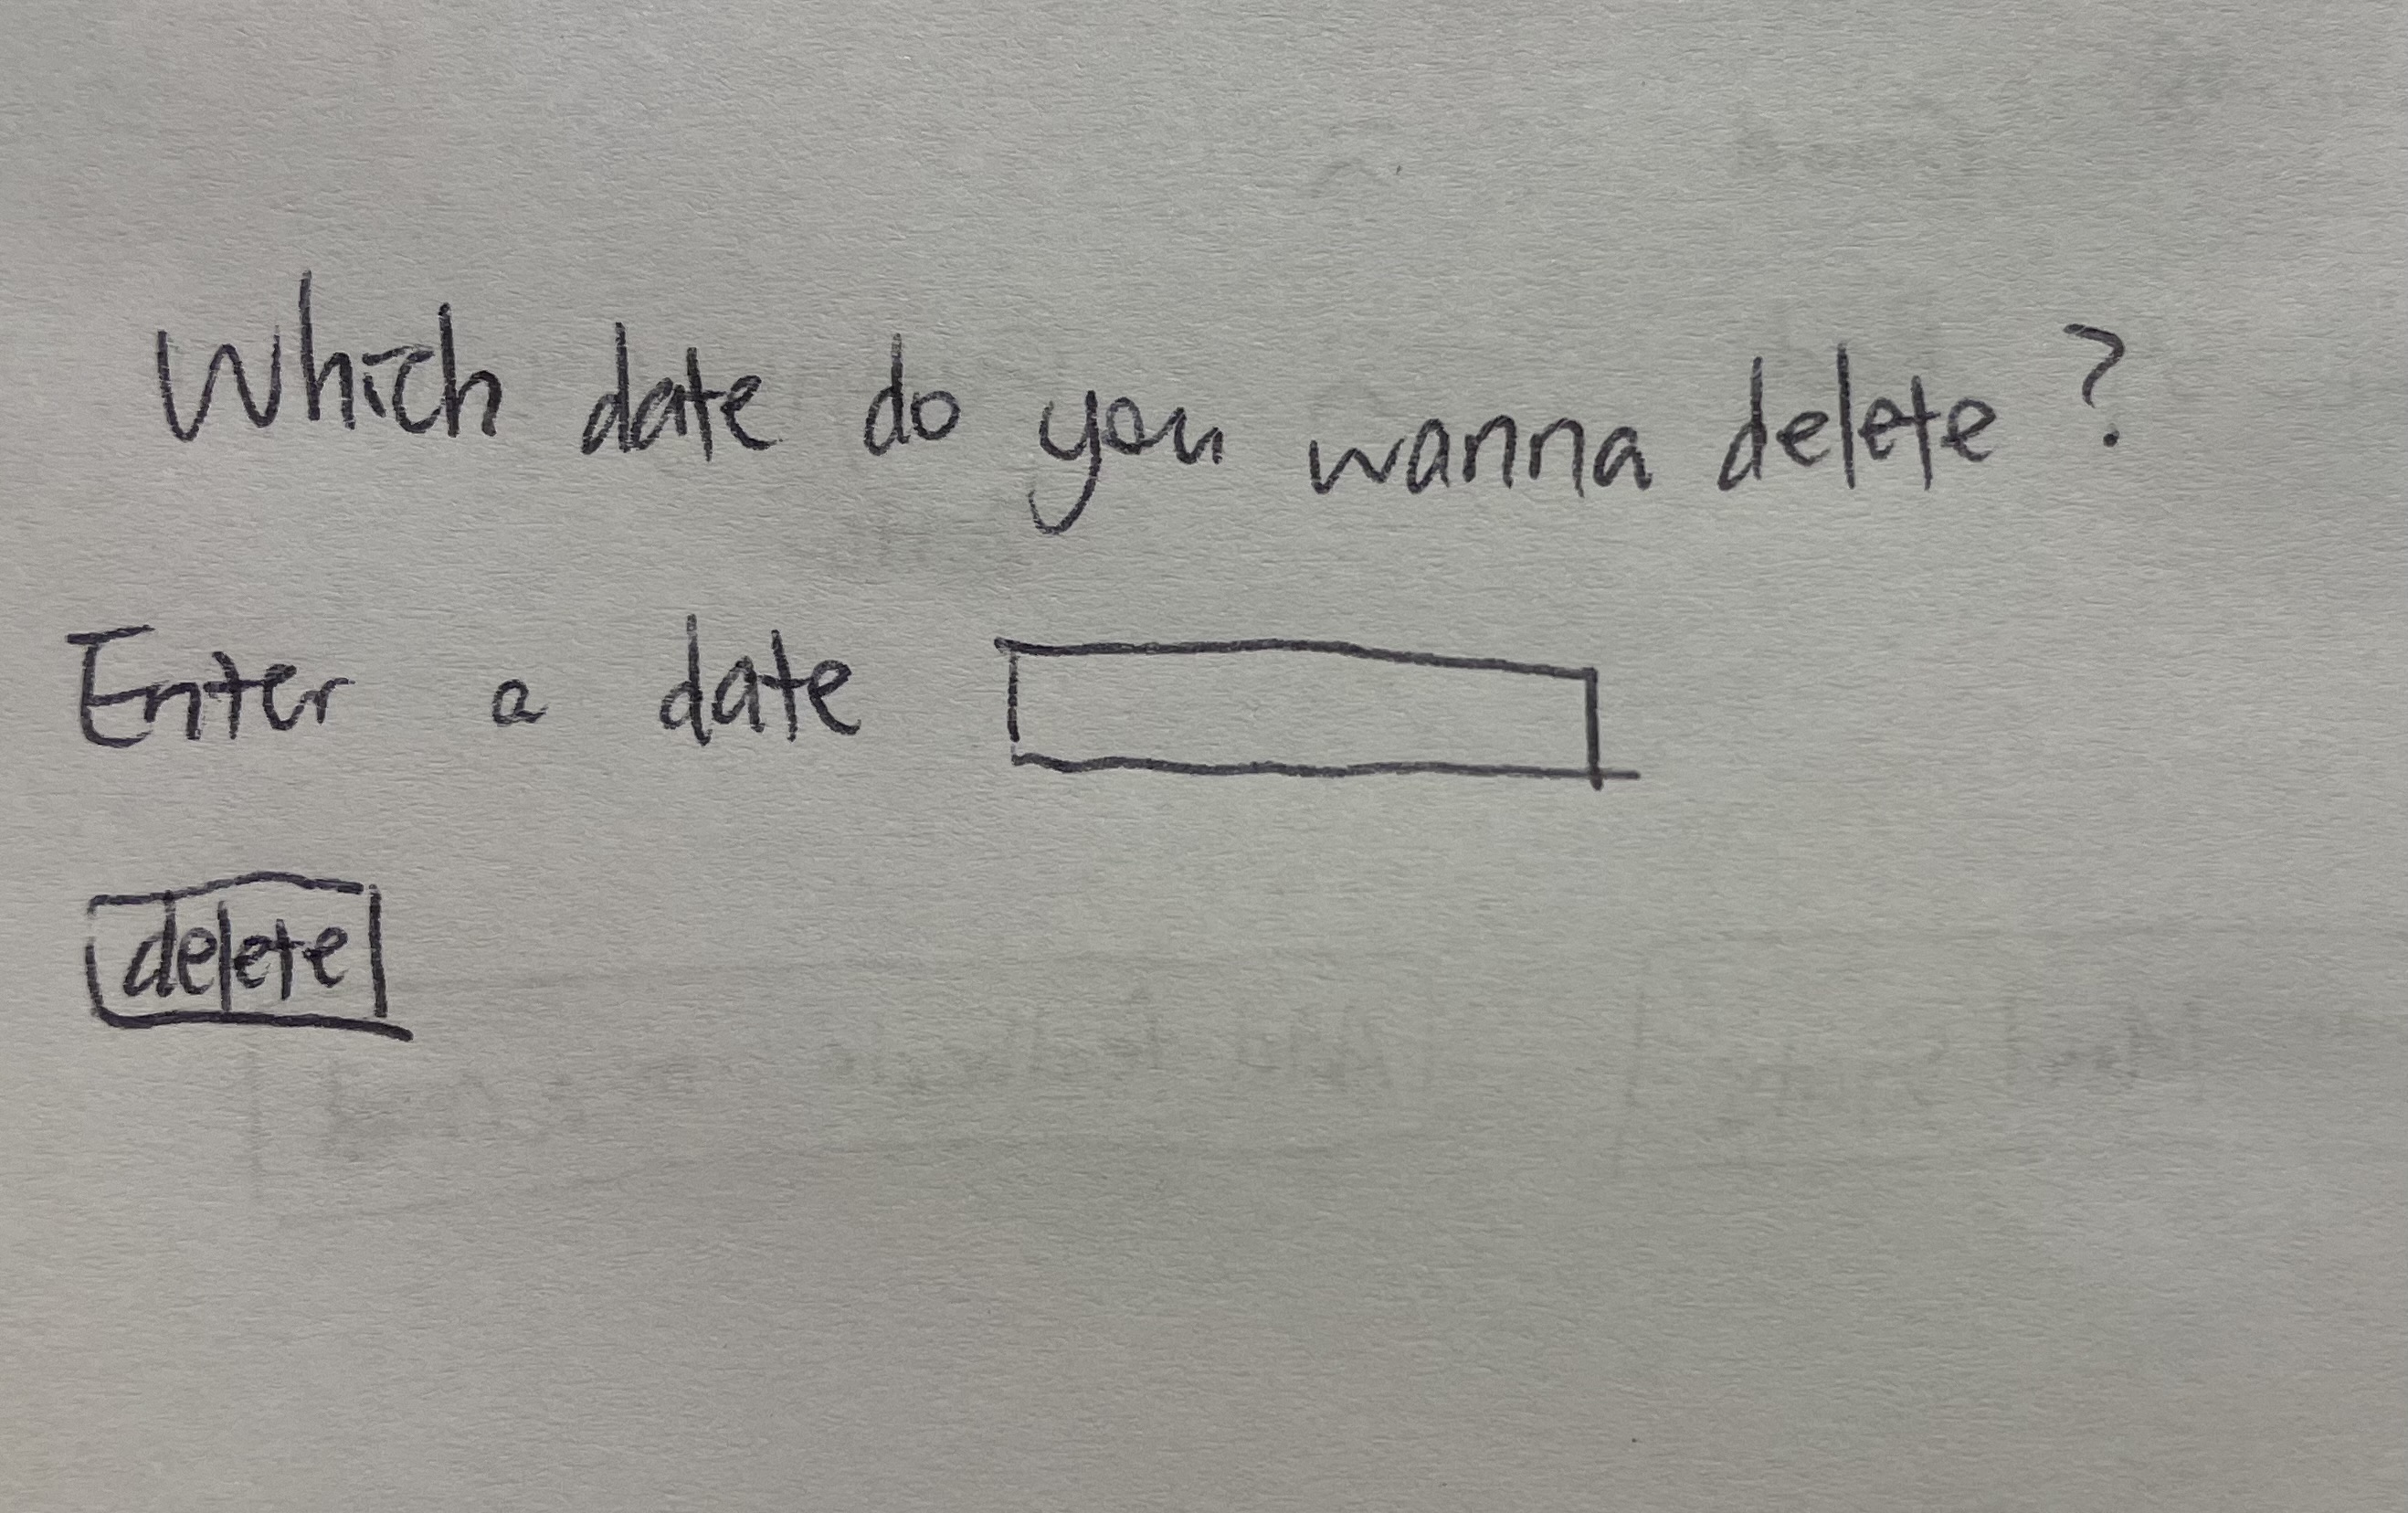 Which date do you wanna delete?
Enter a date
delete